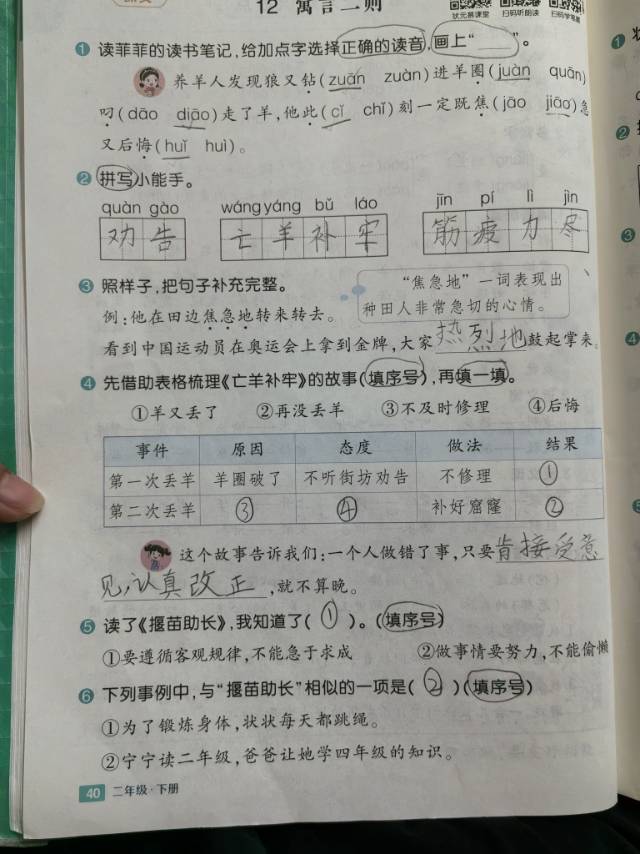 12 寓言二则
状元慕课堂 扫码听朗读 扫码学笔顺
1 读菲菲的读书笔记,给加点字选择正确的读音,画上“ ”。
养羊人发现狼又钻(zuān zuàn)进羊圈(juàn quān)
叼(dāo diāo)走了羊,他此(cǐ chǐ)刻一定既焦(jāo jiāo)急
又后悔(huǐ huì)。
2 拼写小能手。
quàn gào wáng yáng bǔ láo jīn pí lì jìn
劝告 亡羊补牢 筋疲力尽
3 照样子,把句子补充完整。
“焦急地”一词表现出
种田人非常急切的心情。
例:他在田边焦急地转来转去。
看到中国运动员在奥运会上拿到金牌,大家热烈地鼓起掌来。
4 先借助表格梳理《亡羊补牢》的故事(填序号),再填一填。
①羊又丢了 ②再没丢羊 ③不及时修理 ④后悔
事件 原因 态度 做法 结果
第一次丢羊 羊圈破了 不听街坊劝告 不修理 ①
第二次丢羊 ③ ④ 补好窟窿 ②
这个故事告诉我们:一个人做错了事,只要肯接受意
见,认真改正,就不算晚。
5 读了《揠苗助长》,我知道了( ① )。(填序号)
①要遵循客观规律,不能急于求成 ②做事情要努力,不能偷懒
6 下列事例中,与“揠苗助长”相似的一项是( ② )(填序号)
①为了锻炼身体,状状每天都跳绳。
②宁宁读二年级,爸爸让她学四年级的知识。
40 二年级·下册